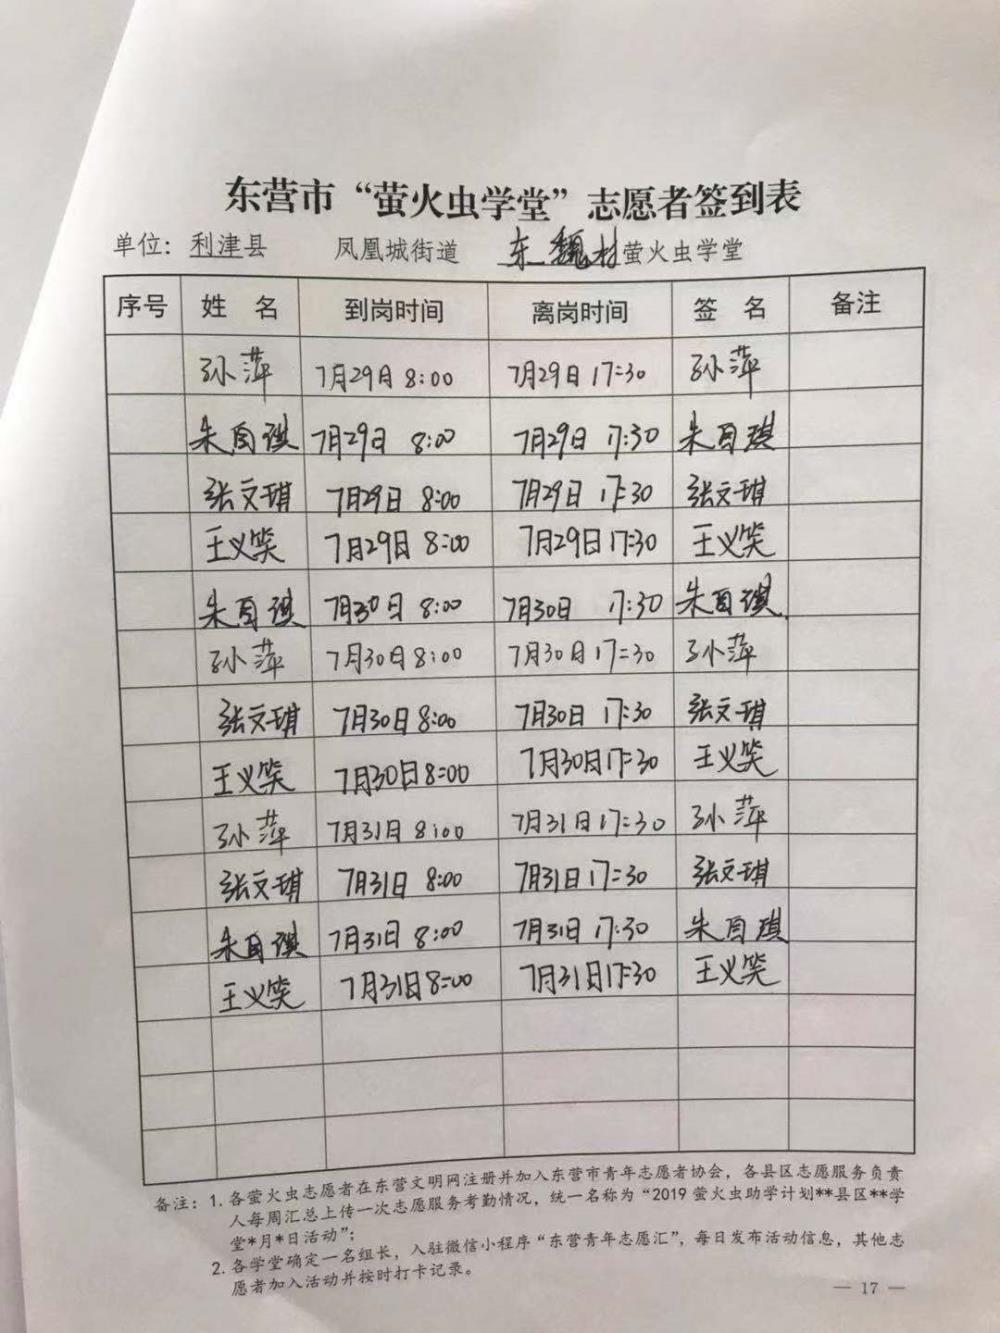 东营市“萤火虫学堂”志愿者签到表
单位：利津县 凤凰城街道 东魏村萤火虫学堂
序号 姓 名 到岗时间 离岗时间 签 名 备注
孙萍 7月29日 8:00 7月29日 17:30 孙萍
朱自琪 7月29日 8:00 7月29日 17:30 朱自琪
张文琪 7月29日 8:00 7月29日 17:30 张文琪
王义笑 7月29日 8:00 7月29日 17:30 王义笑
朱自琪 7月30日 8:00 7月30日 17:30 朱自琪
孙萍 7月30日 8:00 7月30日 17:30 孙萍
张文琪 7月30日 8:00 7月30日 17:30 张文琪
王义笑 7月30日 8:00 7月30日 17:30 王义笑
孙萍 7月31日 8:00 7月31日 17:30 孙萍
张文琪 7月31日 8:00 7月31日 17:30 张文琪
朱自琪 7月31日 8:00 7月31日 17:30 朱自琪
王义笑 7月31日 8:00 7月31日 17:30 王义笑
备注：1. 各萤火虫志愿者在东营文明网注册并加入东营市青年志愿者协会，各县区志愿服务负责
人每周汇总上传一次志愿服务考勤情况，统一名称为“2019 萤火虫助学计划**县区**学
堂*月*日活动”；
2. 各学堂确定一名组长，入驻微信小程序“东营青年志愿汇”，每日发布活动信息，其他志
愿者加入活动并按时打卡记录。
— 17 —